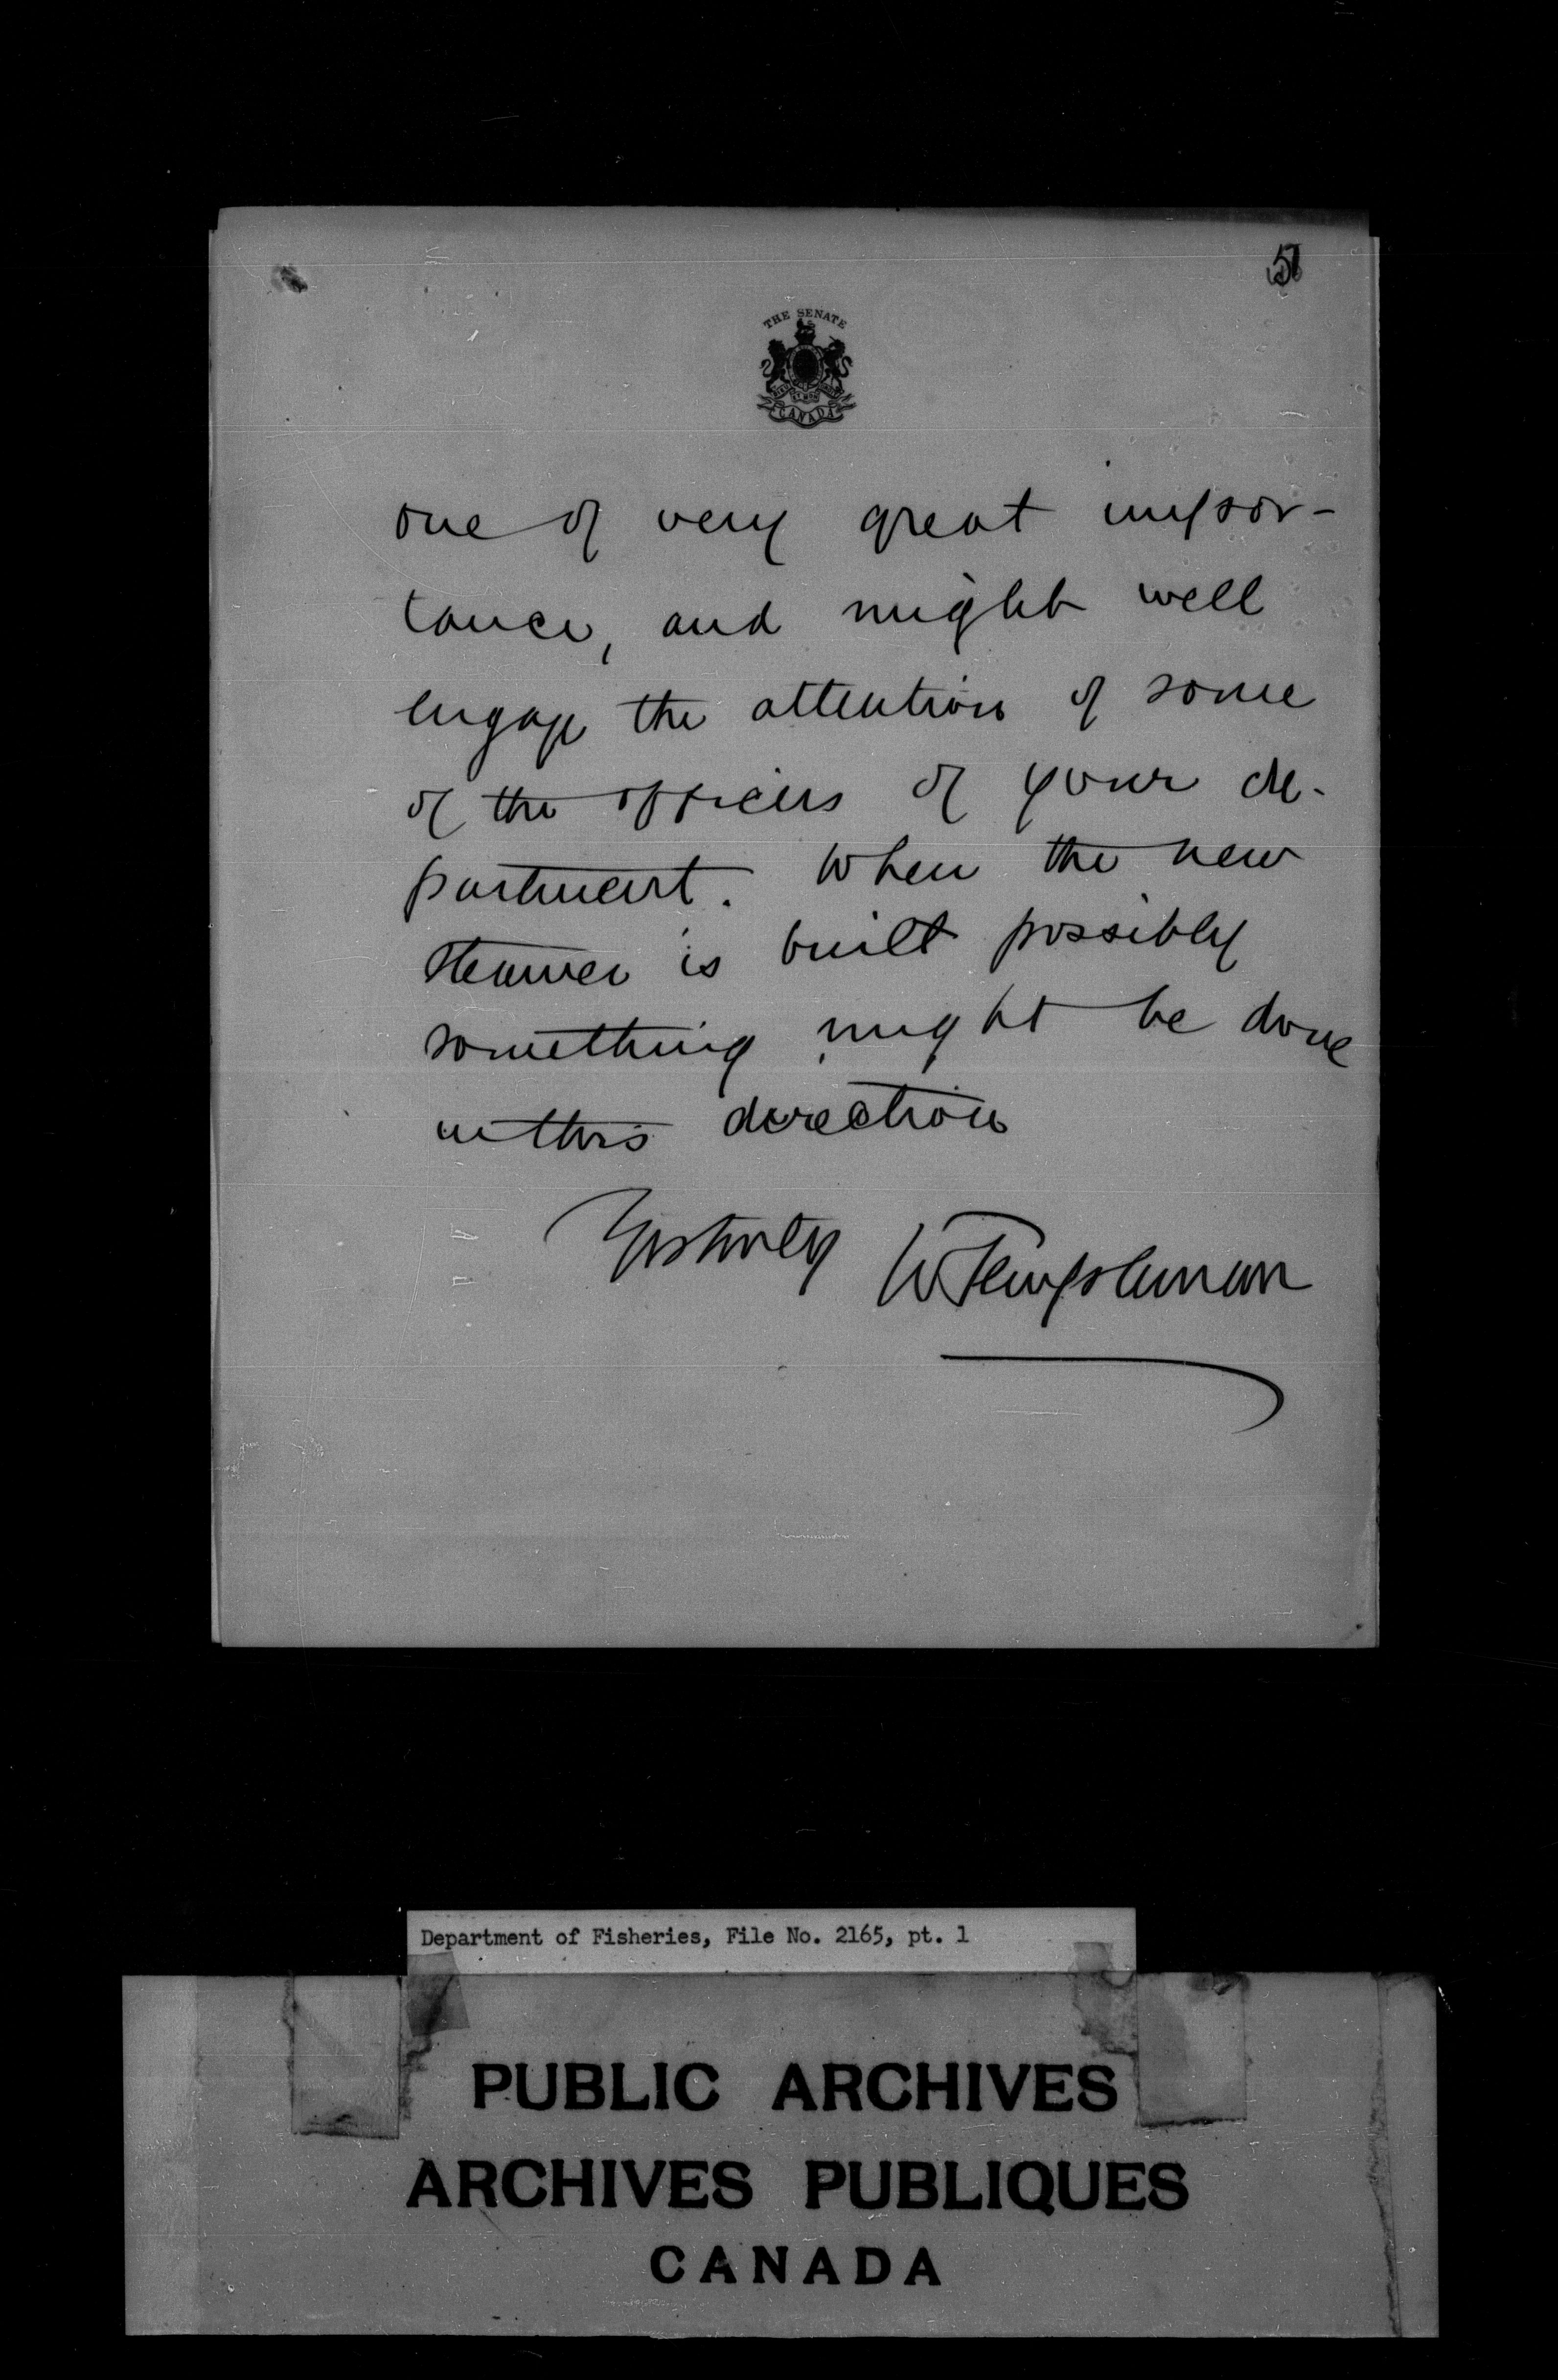 51
THE SENATE
CANADA
one of very great impor-
tance, and might well
engage the attention of some
of the officers of your de-
partment. When the new
steamer is built possibly
something might be done
in this direction
Yrs truly W Templeman
Department of Fisheries, File No. 2165, pt. 1
PUBLIC ARCHIVES
ARCHIVES PUBLIQUES
CANADA